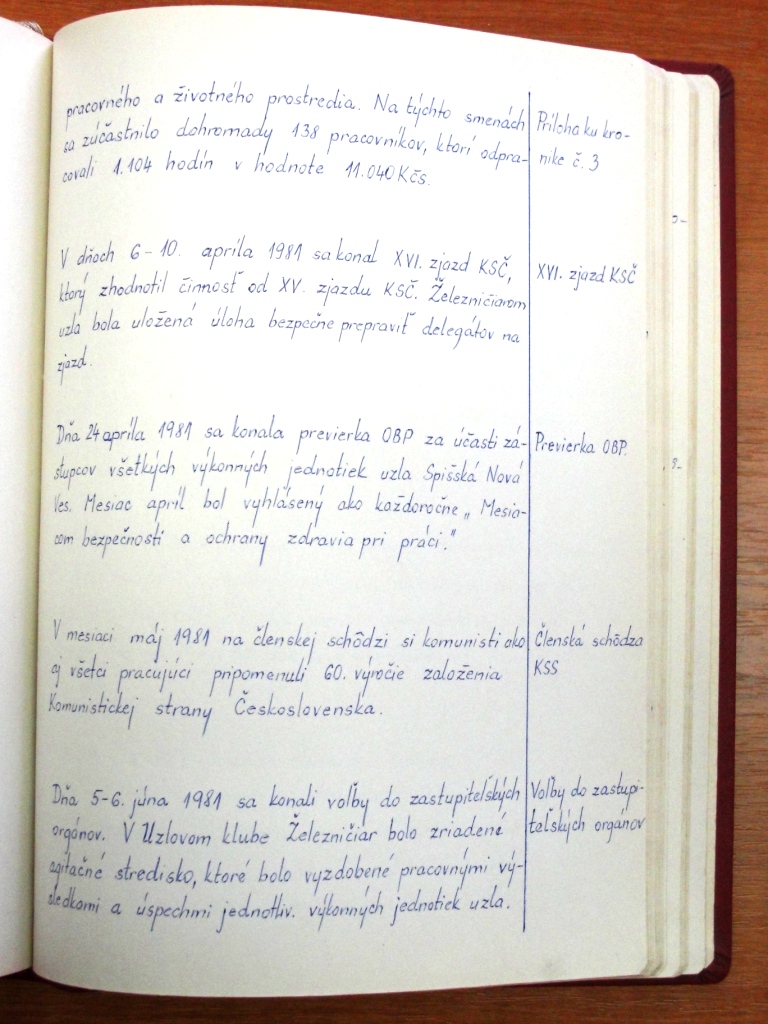 pracovného a životného prostredia. Na týchto smenách
sa zúčastnilo dohromady 138 pracovníkov, ktorí odpra-
covali 1.104 hodín v hodnote 11.040 Kčs.
Príloha ku kro-
nike č. 3
V dňoch 6-10. apríla 1981 sa konal XVI. zjazd KSČ,
ktorý zhodnotil činnosť od XV. zjazdu KSČ. Železničiarom
uzla bola uložená úloha bezpečne prepraviť delegátov na
zjazd.
XVI. zjazd KSČ
Dňa 24 apríla 1981 sa konala previerka OBP za účasti zá-
stupcov všetkých výkonných jednotiek uzla Spišská Nová
Ves. Mesiac apríl bol vyhlásený ako každoročne „Mesia-
com bezpečnosti a ochrany zdravia pri práci."
Previerka OBP.
V mesiaci máj 1981 na členskej schôdzi si komunisti ako
aj všetci pracujúci pripomenuli 60. výročie založenia
Komunistickej strany Československa.
Členská schôdza
KSS
Dňa 5-6. júna 1981 sa konali voľby do zastupiteľských
orgánov. V Uzlovom klube Železničiar bolo zriadené
agitačné stredisko, ktoré bolo vyzdobené pracovnými vý-
sledkami a úspechmi jednotliv. výkonných jednotiek uzla.
Voľby do zastupi-
teľských orgánov